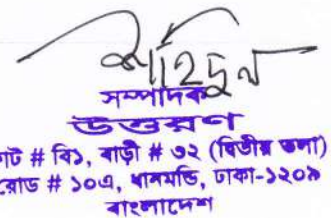 শহিদুল
সম্পাদক
উত্তরণ
# বি১, বাড়ী # ৩২ (দ্বিতীয় তলা)
রোড # ১০এ, ধানমন্ডি, ঢাকা-১২০৯
বাংলাদেশ